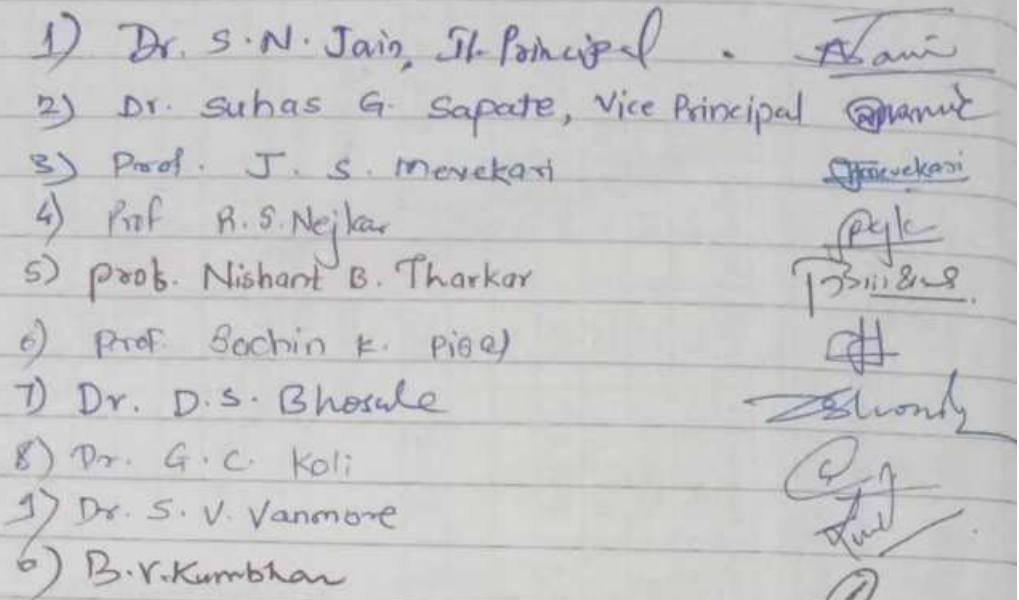 1) Dr. S.N. Jain, I/c Principal.
2) Dr. Suhas G. Sapate, Vice Principal
3) Prof. J. S. Mevekari
4) Prof R.S. Nejkar
5) Prof. Nishant B. Tharkar
6) Prof. Sachin K.
7) Dr. D.S. Bhosale
8) Dr. G.C. Koli
9) Dr. S. V. Vanmore
0) B.V. Kumbhar